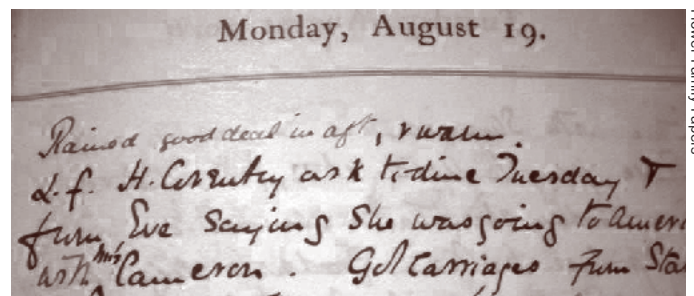 Monday, August 19.
Rained good deal in aft, & warm.
L. f. H. Coventry ask to dine Tuesday &
from Eve saying she was going to Amer
with Mrs Cameron. Got carriages from Sta
Power Family Papers